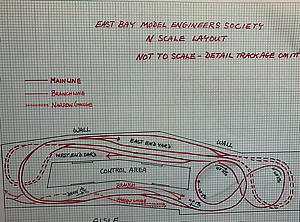 EAST BAY MODEL ENGINEERS SOCIETY
N SCALE LAYOUT
NOT TO SCALE - DETAIL TRACKAGE OMIT
MAIN LINE
BRANCH LINE
NARROW GAUGE
WALL
EAST END YARD
WALL
WEST END YARD
CONTROL AREA
BRANCH
AISLE